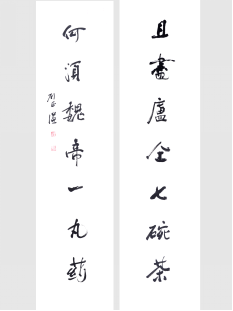 且盡盧仝七碗茶
何須魏帝一丸藥